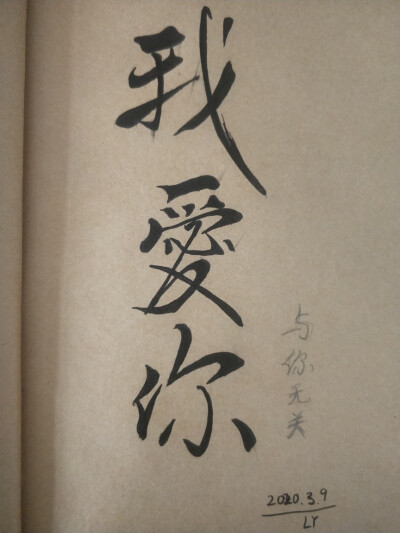 我愛你
与你无关
2020.3.9
LY